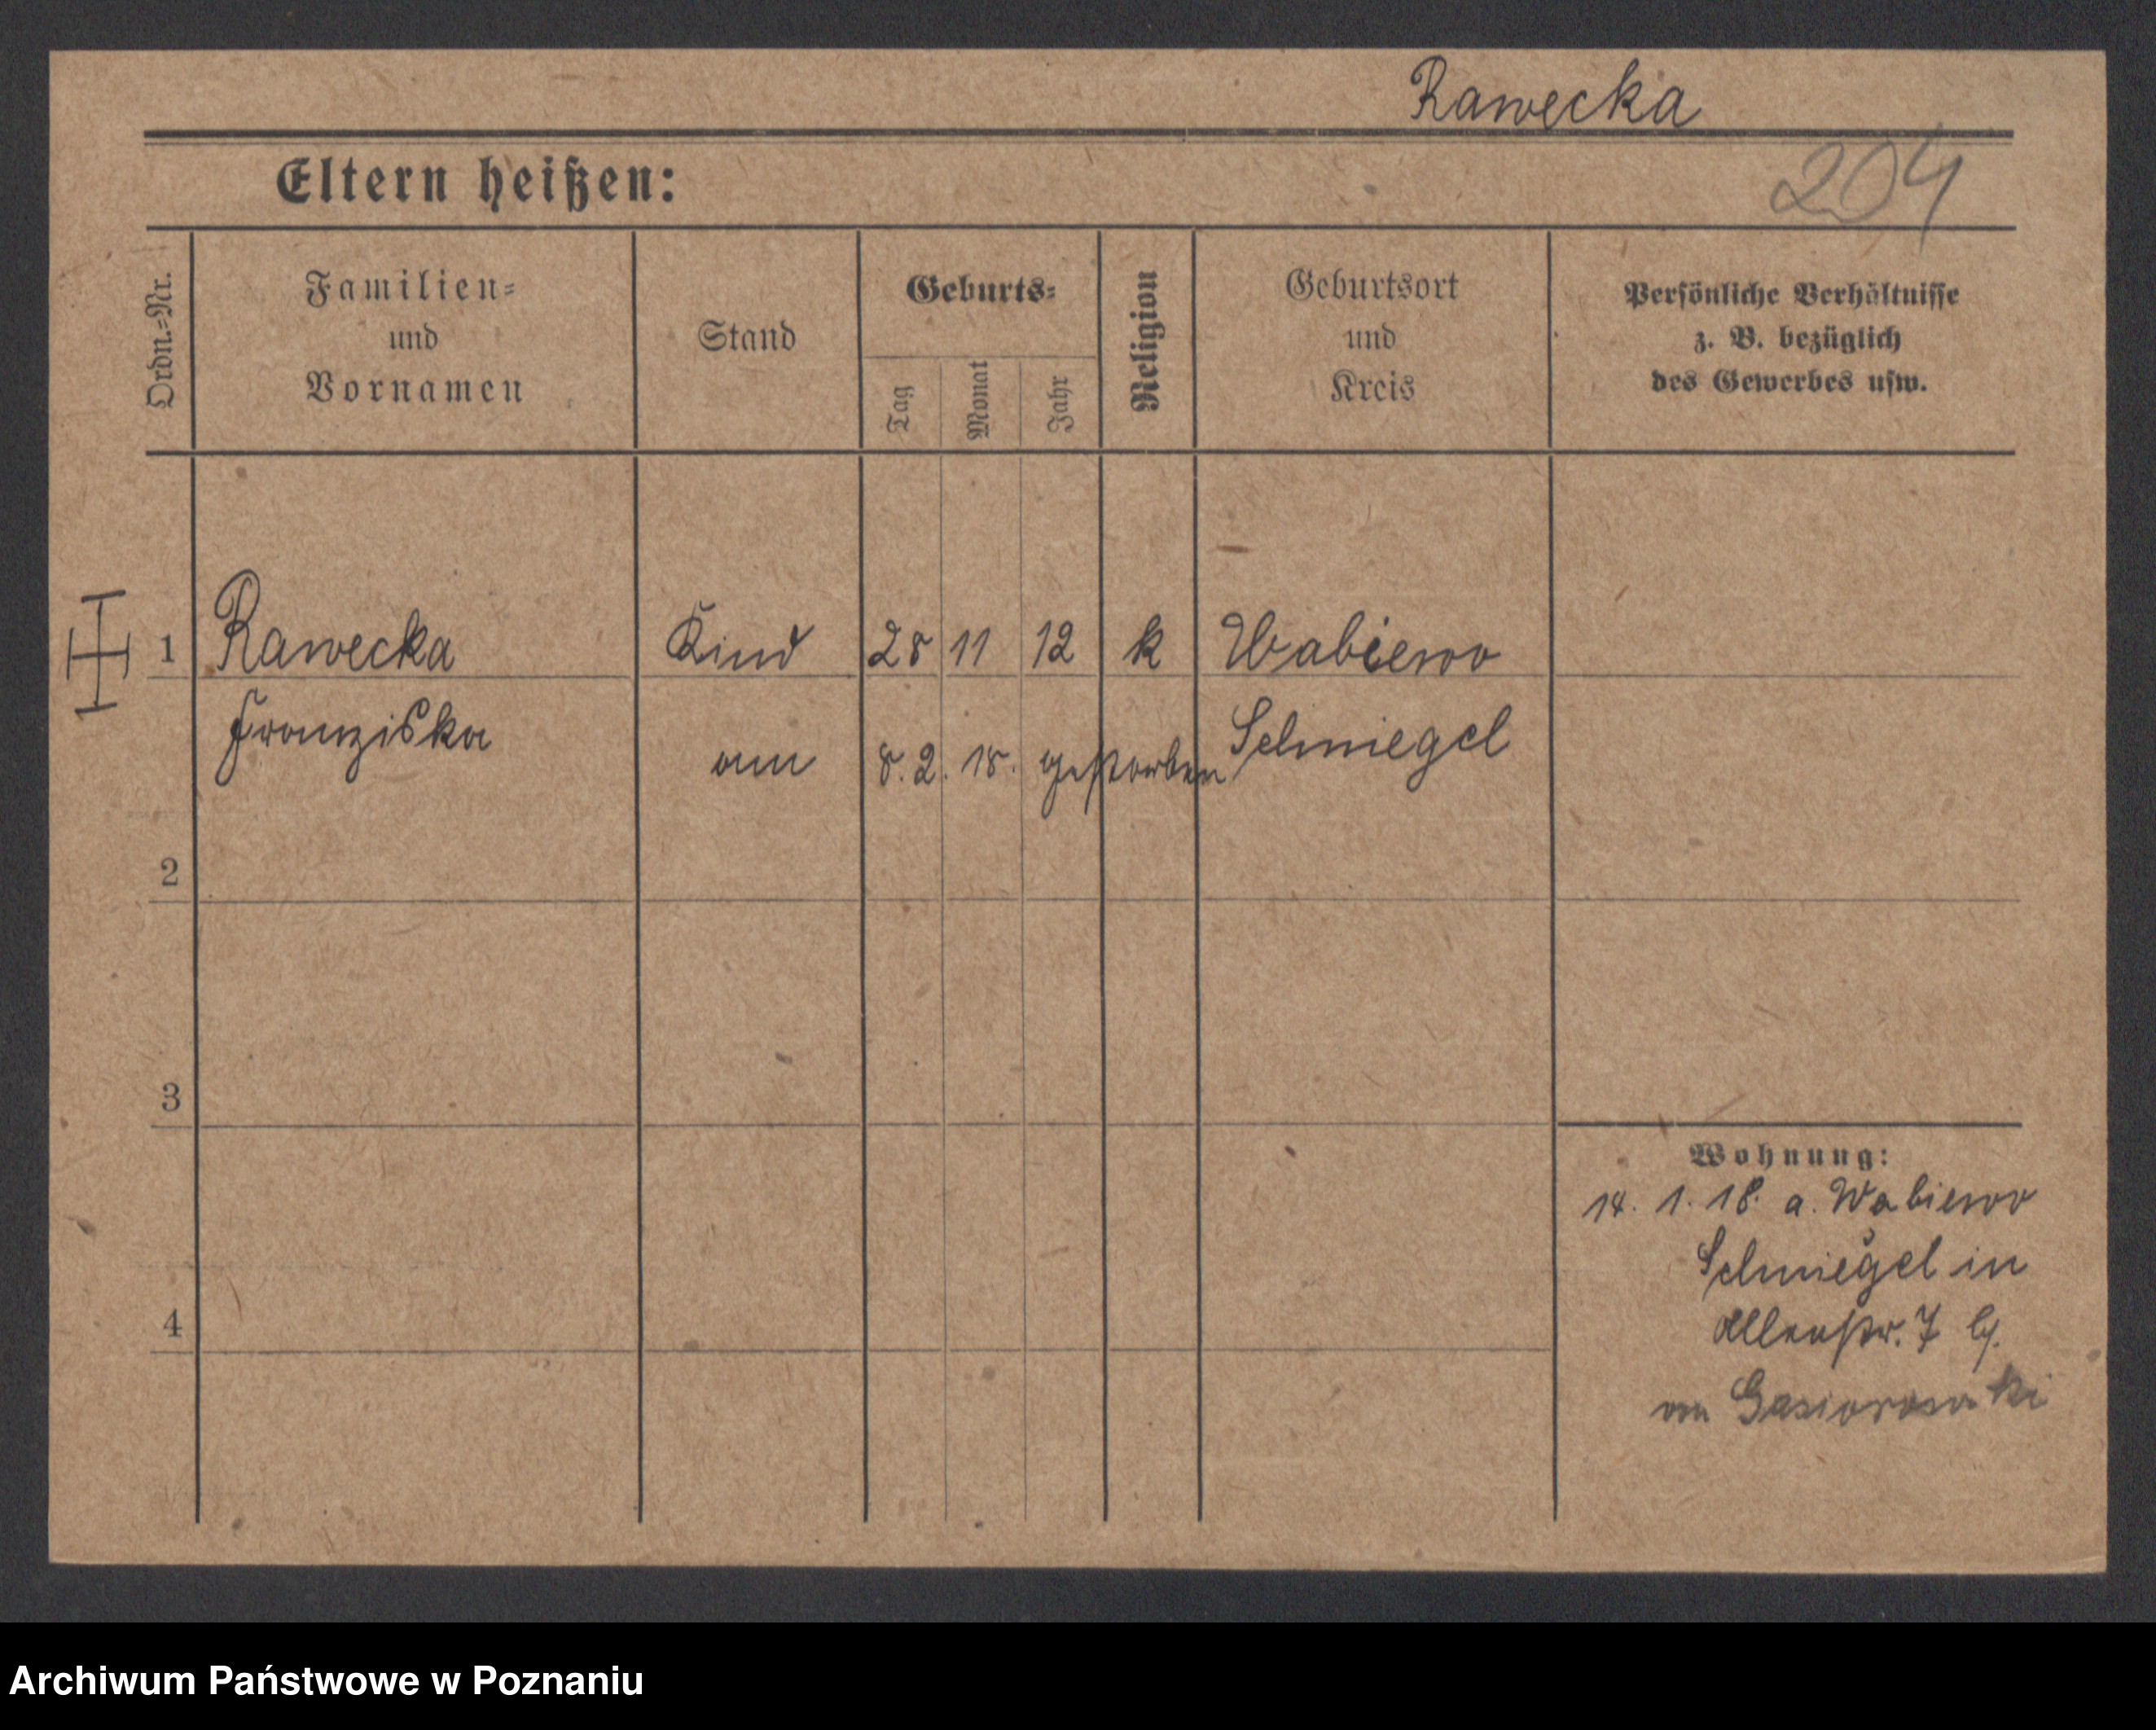 Rawecka
Eltern heißen:
204
Ordn.=Nr.
Familien=
und
Vornamen
Stand
Geburts=
Tag
Monat
Jahr
Religion
Geburtsort
und
Kreis
Persönliche Verhältnisse
z. B. bezüglich
des Gewerbes usw.
1 Rawecka Kind 28 11 12 k Wabiewo
Franziska Schmiegel
am 8. 2. 18. gestorben
2
3
4
Wohnung:
14. 1. 18. a. Wabiewo
Schmiegel in
7
von Gasiorowski
Archiwum Państwowe w Poznaniu